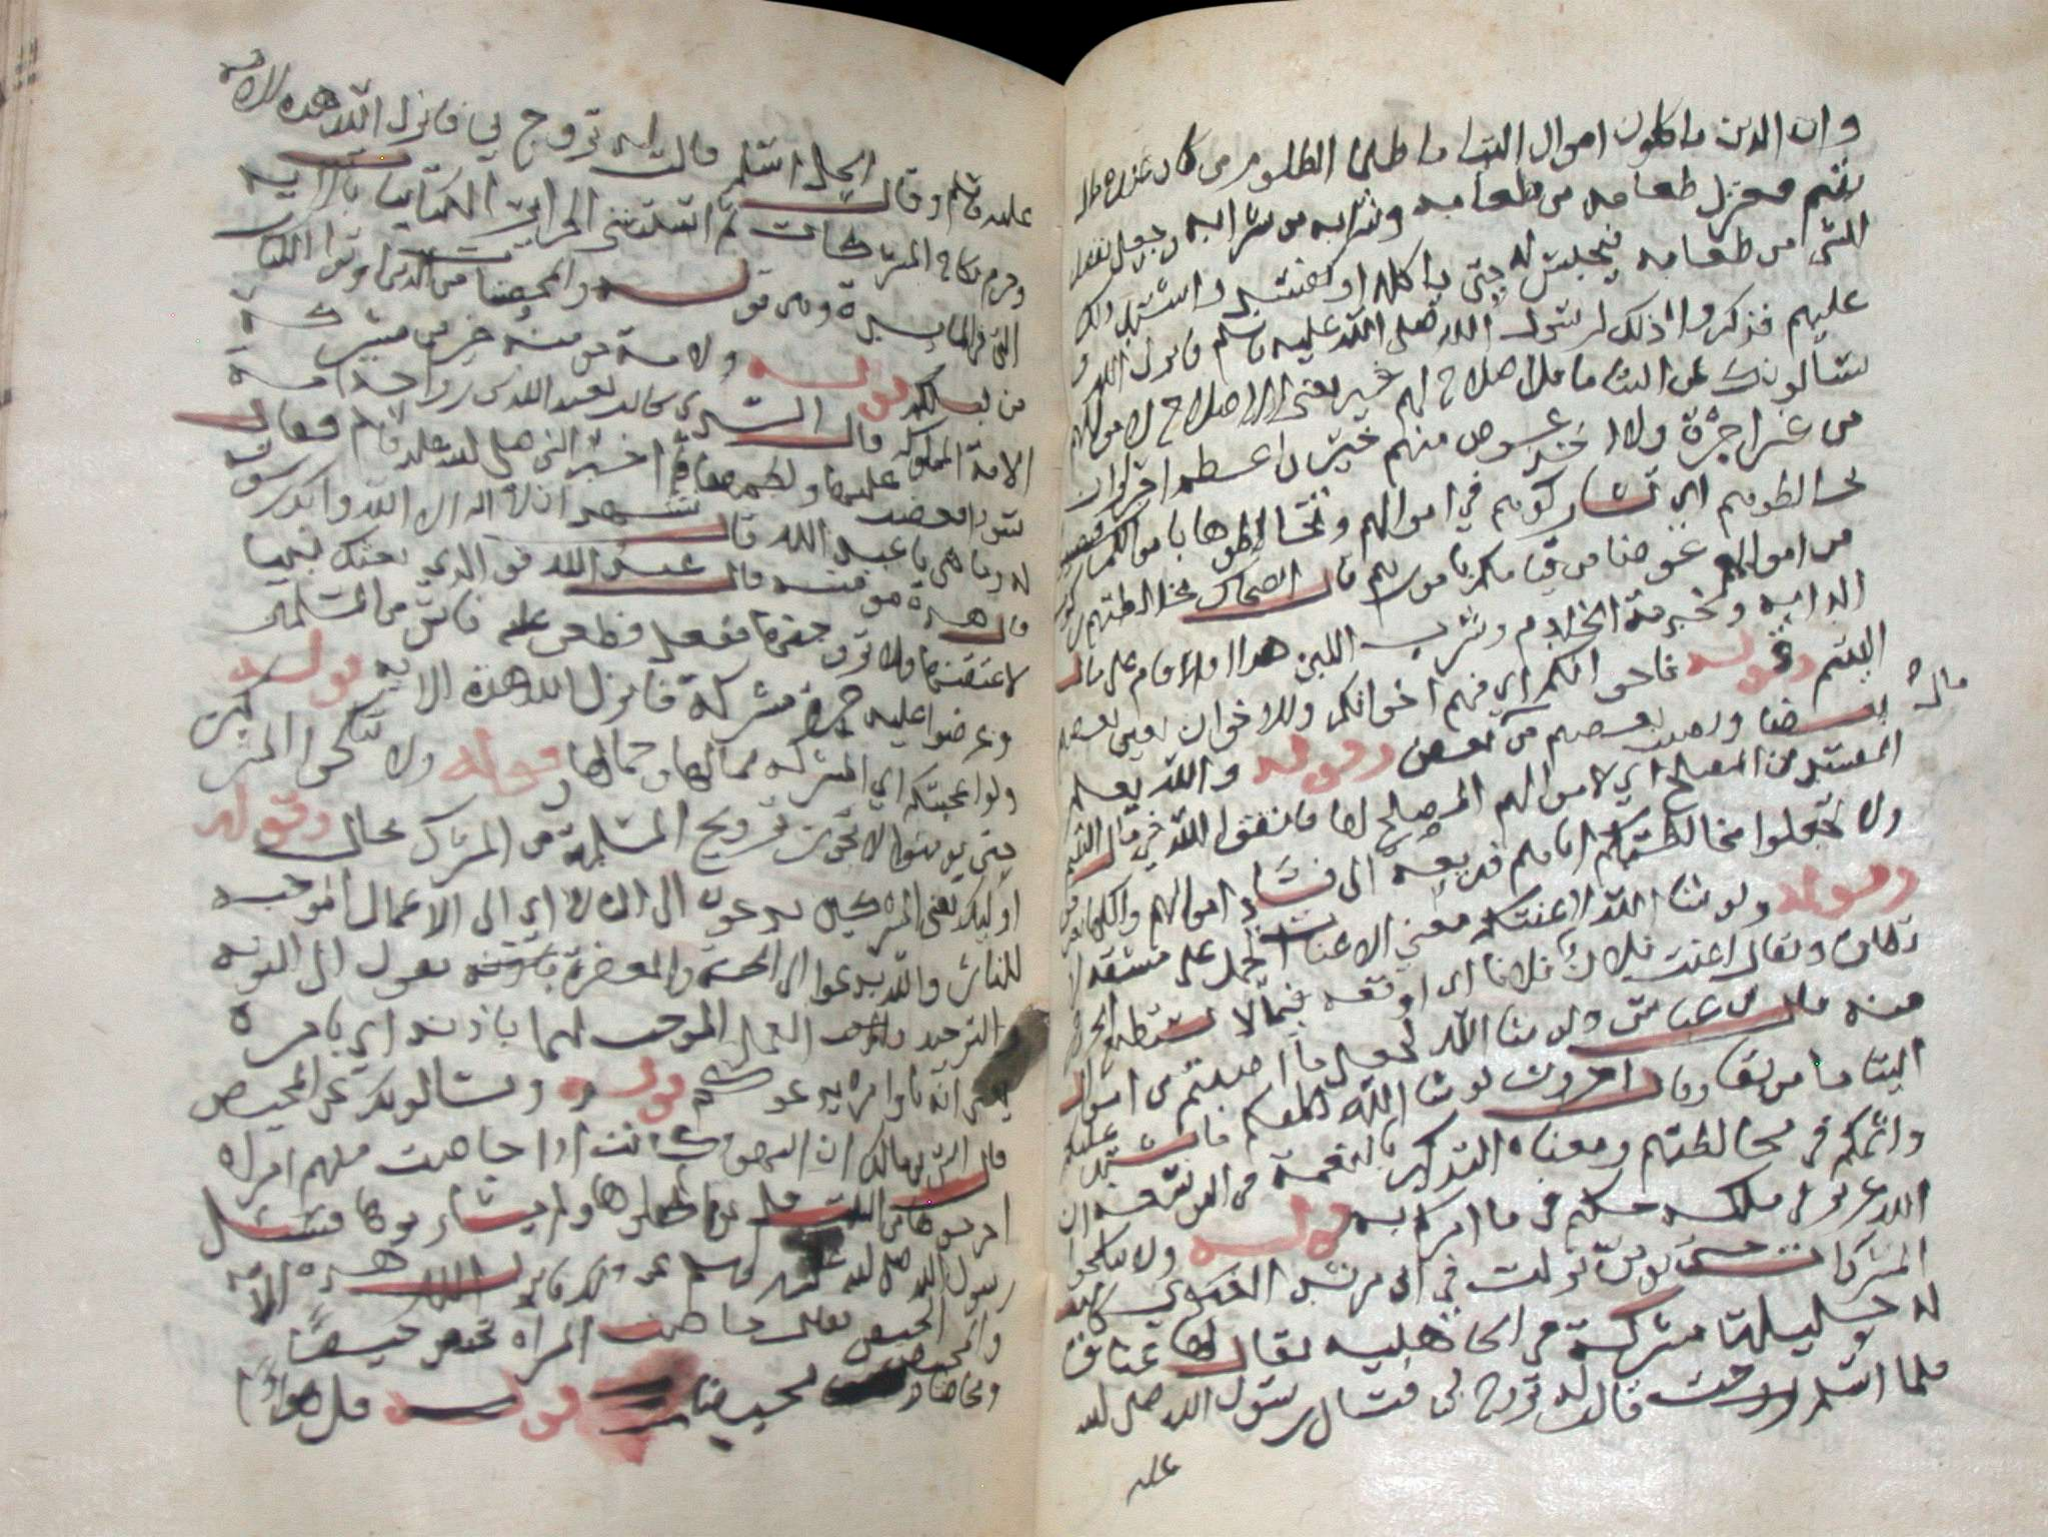 وان الدين ياكلون اموال اليتاما ظلما انطلق من كان عنده مال
يتيم فعزل طعامه من طعامه وشرابه من شرابه وجعل يفضل
الشي من طعامه فيحبس له حتى ياكله او يفسد واشتد ذلك
عليهم فذكروا ذلك لرسول الله صلى الله عليه وسلم فانزل الله و
يسالونك عن اليتاما قل اصلاح لهم خير يعني الاصلاح لاموالهم
من غير اجرة ولا اخذ عوض منهم خير واعظم اجرا وان
تخالطوهم اي تشاركوهم في اموالهم وتخالطوها باموالكم
من اموالهم عوضا من قيامكم بامورهم قال الضحاك مخالطتهم ركوب
الدابه وخدمة الخادم وشرب اللبن هذا اذا قام على مال
اليتيم وقوله فاخوانكم اي فهم اخوانكم والاخوان يعين بعضهم
بعضا ويصيب بعضهم من بعض وقوله والله يعلم
المفسد من المصلح اي لاموالهم المصلح لها فاتقوا الله في مال اليتيم
ولا تجعلوا مخالطتكم اياهم ذريعه الى فساد اموالهم واكلها
وقوله ولو شا الله لاعنتكم معنى الاعنات الحمل على مشقه لا
تطاق ويقال اعنت فلان فلانا اي اوقعه فيما لا يستطيع الخروج
منه قال بن عباس ولو شا الله لجعل ما اصبتم من اموال
اليتاما موبقا وقال اخرون لو شا الله لكلفكم ما يشتد عليكم
واثمكم في مخالطتهم ومعناه التذكير بالنعمة في التوسعه ان
الله عزيز في ملكه حكيم في ما امركم به قوله ولا تنكحوا
المشركات حتى يؤمن نزلت في ابي مرثد الغنوي كانت
له خليلة مشركة في الجاهليه يقال لها عناق
فلما اسلم قالت له تزوج بي فسال رسول الله صلى الله
عليه
عليه وسلم وقال ايحل اسلم قالت له تزوج بي فانزل الله هذه الاية
وحرم نكاح المشركات ثم استثنى الحراير الكتابيات بالاية
التي في المايدة وهي قوله والمحصنات من الذين اوتوا الكتاب
من قبلكم قوله ولامة مومنه خير من مشركة
قال السدي كانت لعبد الله بن رواحه امة
فغضب عليها ولطمها ثم اخبر النبي صلى الله عليه وسلم فقال
له وما هي يا عبد الله قال تشهد ان لا اله الا الله وانك رسوله
قال هذه مومنه قال عبد الله فو الذي بعثك نبيا
لاعتقنها ولاتزوجنها ففعل فطعن عليه ناس من المسلمين
وعرضوا عليه حرة مشركة فانزل الله هذه الايه قوله
ولو اعجبتكم اي المشركه بمالها وجمالها قوله ولا تنكحوا المشركين
حتى يومنوا لا يجوز تزويج المسلمة من المشرك بحال وقوله
اوليك يعني المشركين يدعون الى النار اي الى الاعمال الموجبه
للنار والله يدعوا الى الجنة والمغفرة باذنه يقول الى التوبه
التوحيد العمل الموجب لهما باذنه اي بامره
يعني انه باوامره يدعوكم قوله ويسالونك عن المحيض
قال انس بن مالك ان اليهود كانت اذا حاضت منهم امراه
اخرجوها من البيت فلم يواكلوها ولم يشاربوها فسئل
رسول الله صلى الله عليه وسلم عن ذلك فانزل الله هذه الاية
والمحيض الحيض يقال حاضت المراه تحيض حيضا
ومحاضا ومحيضا قوله قل هو اذى